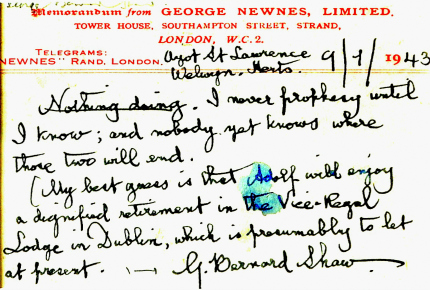 Memorandum from GEORGE NEWNES, LIMITED.
TOWER HOUSE, SOUTHAMPTON STREET, STRAND,
LONDON, W.C.2.
TELEGRAMS:
NEWNES" RAND, LONDON.
Ayot St Lawrence
Welwyn. Herts.
9/1/1943
Nothing doing. I never prophesy until
I know; and nobody yet knows where
those two will end.
(My best guess is that Adolf will enjoy
a dignified retirement in the Vice-Regal
Lodge in Dublin, which is presumably to let
at present. G. Bernard Shaw